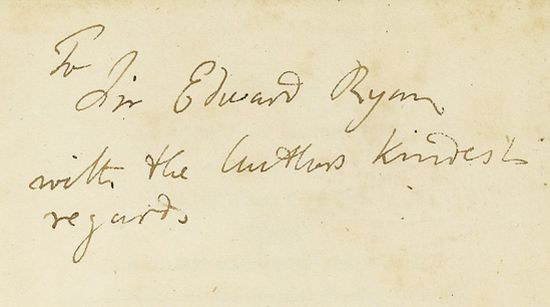 To
Sir Edward Ryan
with the Authors kindest
regards